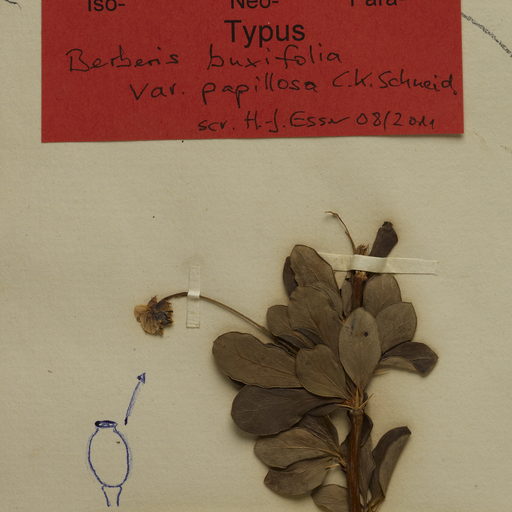 Iso- Neo- Para-
Typus
Berberis buxifolia
var. papillosa C.K. Schneid.
scr. H.-J. Esser 08/2011